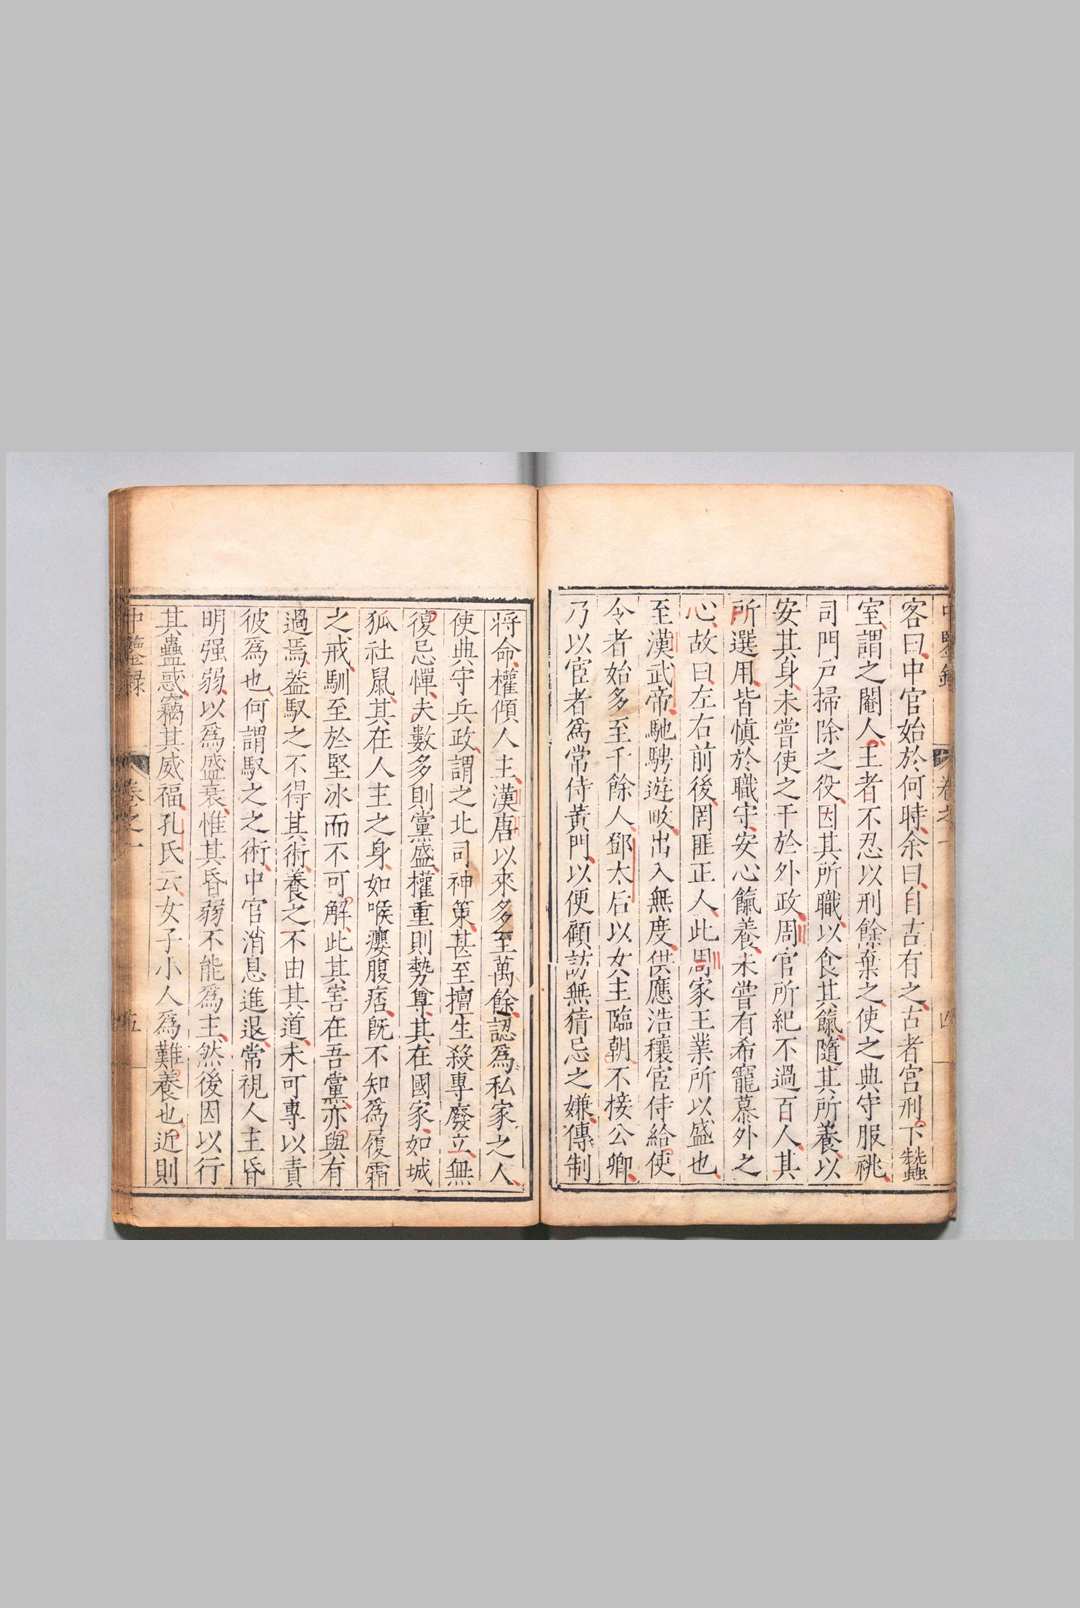 中鑒錄 卷之一 四
客曰中官始於何時余曰自古有之古者宮刑下蠶
室謂之閹人王者不忍以刑餘棄之使之典守服祧
司門戸掃除之役因其所職以食其餼隨其所養以
安其身未嘗使之干於外政周官所紀不過百人其
所選用皆慎於職守安心餼養未嘗有希寵慕外之
心故曰左右前後罔匪正人此周家王業所以盛也
至漢武帝馳騁遊畋出入無度供應浩穰宦侍給使
令者始多至千餘人鄧太后以女主臨朝不接公卿
乃以宦者爲常侍黃門以便顧訪無猜忌之嫌傳制
将命權傾人主漢唐以來多至萬餘認爲私家之人
使典守兵政謂之北司神策甚至擅生殺專廢立無
復忌憚夫數多則黨盛權重則勢尊其在國家如城
狐社鼠其在人主之身如喉癭腹痞旣不知爲履霜
之戒馴至於堅冰而不可解此其害在吾黨亦與有
過焉葢馭之不得其術養之不由其道未可專以責
彼爲也何謂馭之之術中官消息進退常視人主昏
明强弱以爲盛衰惟其昏弱不能爲主然後因以行
其蠱惑竊其威福孔氏云女子小人爲難養也近則
中鑒錄 卷之一 五